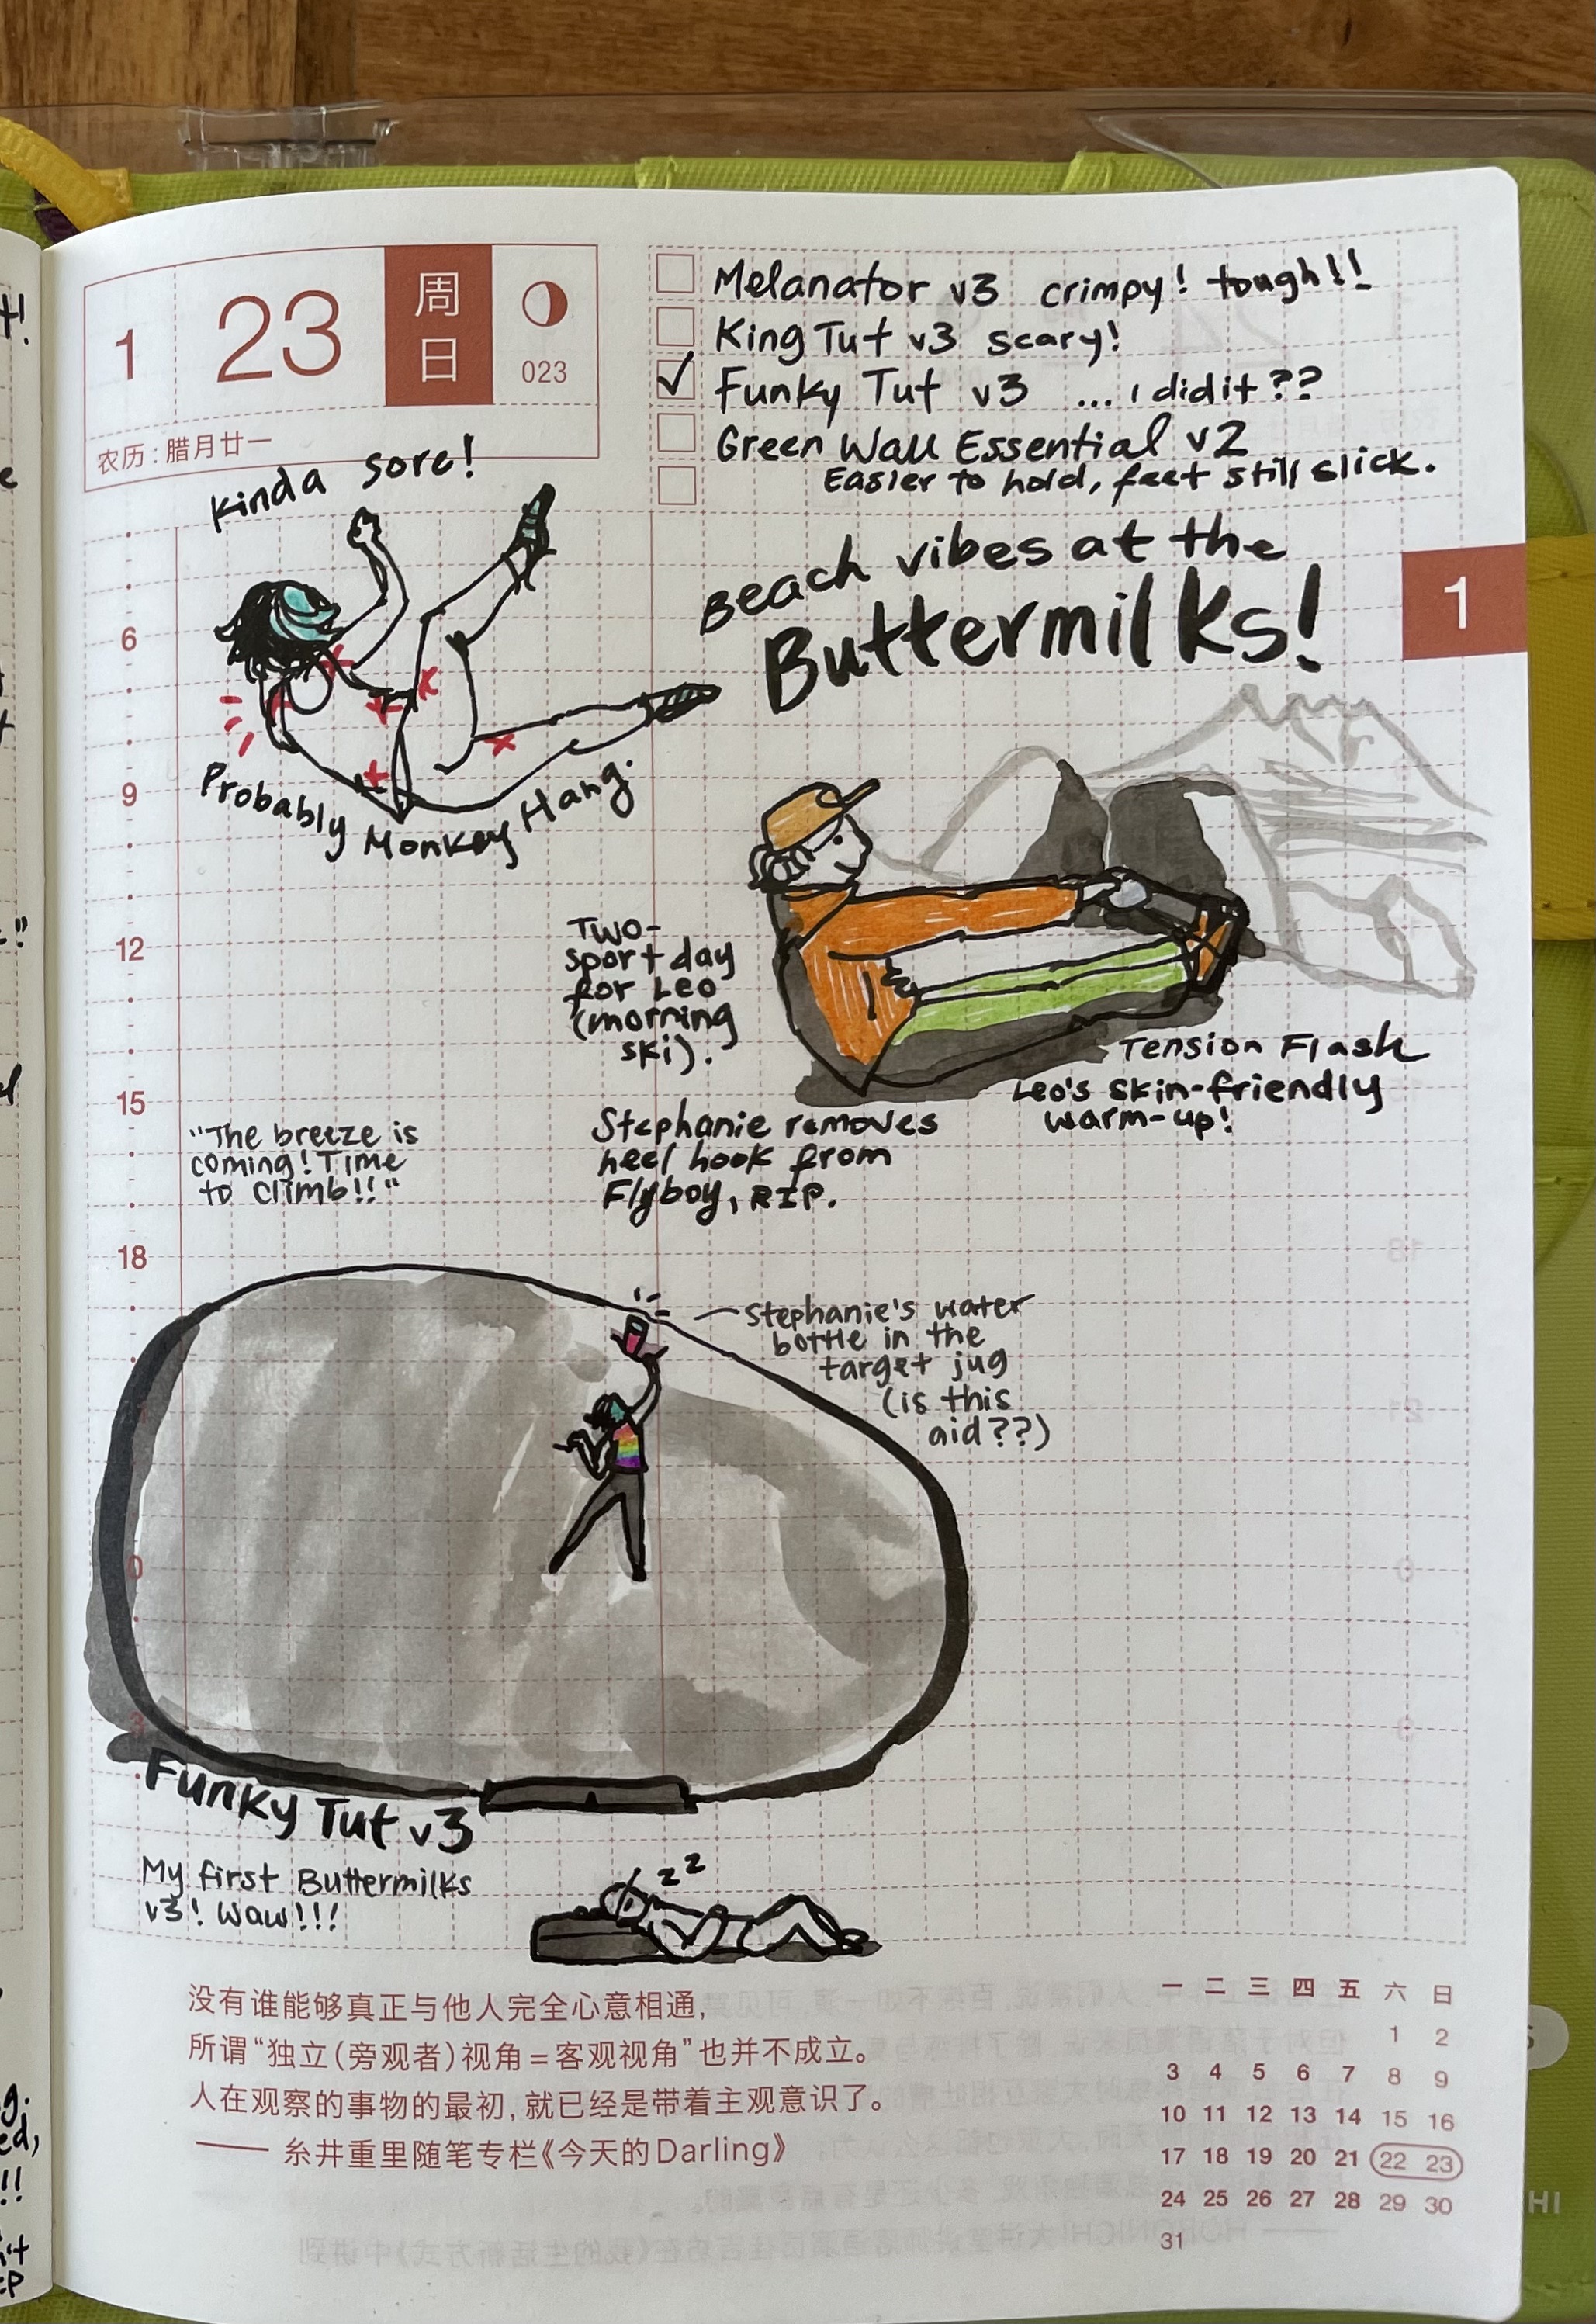 1
23
周日
023
农历:腊月廿一
Melanator v3 crimpy! tough!!
King Tut v3 scary!
✓ Funky Tut v3 ... i did it??
Green Wall Essential v2
Easier to hold, feet still slick.
Kinda sore!
Probably Monkey Hang.
Beach vibes at the
Buttermilks!
1
6
9
12
15
18
Two-
sport day
for Leo
(morning
ski).
Tension Flash
Leo's skin-friendly
warm-up!
"The breeze is
coming! Time
to climb!!"
Stephanie removes
heel hook from
Flyboy, RIP.
Stephanie's water
bottle in the
target jug
(is this
aid??)
0
3
Funky Tut v3
My first Buttermilks
v3! Waw!!!
z z
没有谁能够真正与他人完全心意相通,
所谓“独立(旁观者)视角=客观视角”也并不成立。
人在观察的事物的最初,就已经是带着主观意识了。
—— 糸井重里随笔专栏《今天的Darling》
一 二 三 四 五 六 日
1 2
3 4 5 6 7 8 9
10 11 12 13 14 15 16
17 18 19 20 21 22 23
24 25 26 27 28 29 30
31
HI